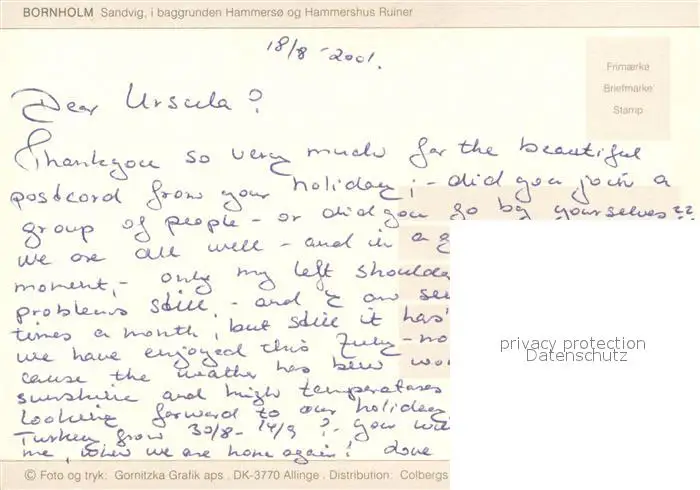 BORNHOLM Sandvig, i baggrunden Hammersø og Hammershus Ruiner
18/8 - 2001.
Frimærke
Briefmarke
Stamp
Dear Ursula?
Thankyou so very much for the beautiful
postcord from your holiday; - did you join a
group of people - or did you go by yourselves??
we are all well - and in a g
moment, - only my left shoulde
problems still, - and I am see
times a month, but still it has
we have enjoyed this July - no
cause the weather has been wo
sunshine and high temperatures
Looking forward to our holiday
Turkey from 30/8 - 14/9 ? - you wi
me, when we are home again! Love
privacy protection
Datenschutz
© Foto og tryk: Gornitzka Grafik aps . DK-3770 Allinge . Distribution: Colbergs